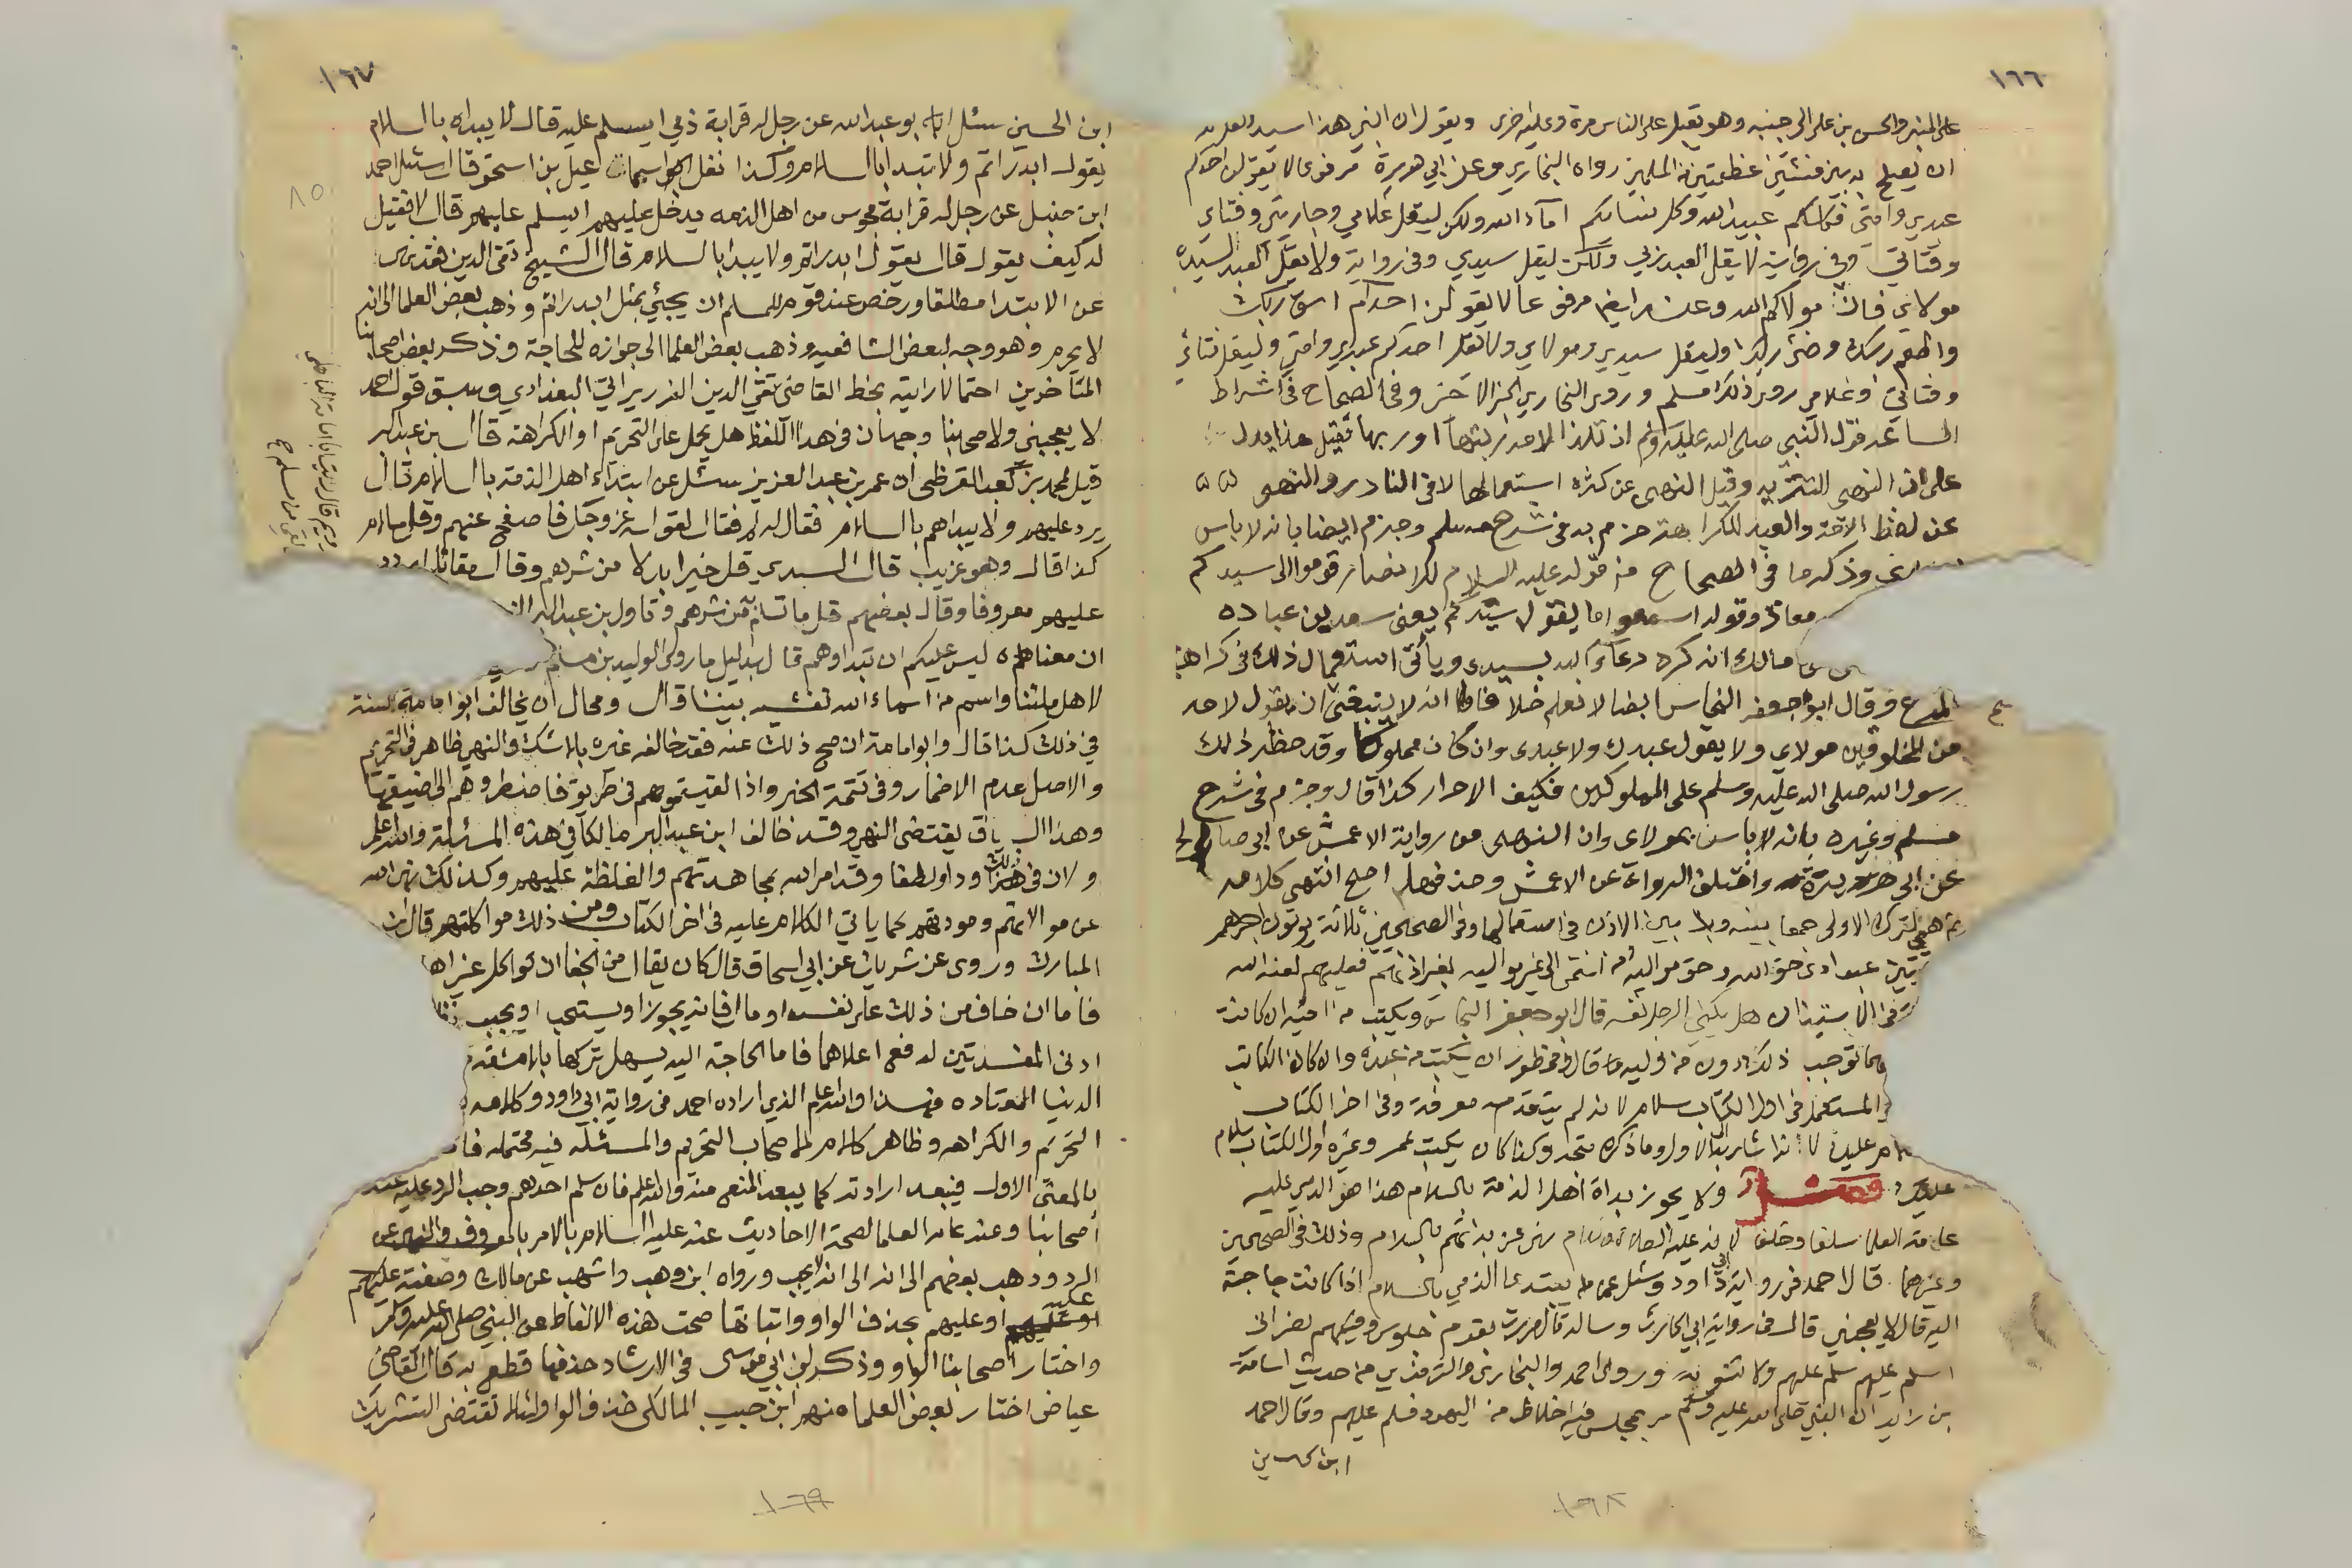 ١٦٦
على المنبر والحسن بن علي الى جنبه وهو يقبل على الناس مرة وعليه اخرى ويقول ان ابني هذا سيد ولعل الله
ان يصلح به بين فئتين عظيمتين من المسلمين رواه البخاري وعن ابي هريرة مرفوعا لا يقولن احدكم
عبدي وامتي فكلكم عبيد الله وكل نسائكم اماء الله ولكن ليقل غلامي وجاريتي وفتاي
وفتاتي وفي رواية لا يقل العبد ربي ولكن ليقل سيدي وفي رواية ولا يقل العبد لسيده
مولاي فان مولاكم الله وعنه ايضا مرفوعا لا يقولن احدكم اسق ربك
واطعم ربك وضئ ربك وليقل سيدي ومولاي ولا يقل احدكم عبدي وامتي وليقل فتاي
وفتاتي وغلامي روى ذلك مسلم وروى البخاري الخبر الاخير وفي الصحاح في اشراط
الساعة قول النبي صلى الله عليه وسلم ان تلد الامة ربتها او ربها فقيل هذا يدل
على ان النهي للتنزيه وقيل النهي عن كثرة استعمالها لا في النادر والنهي
عن لفظ الامة والعبد للكراهة جزم به في شرح مسلم وجزم ايضا بانه لا باس
وذكر ما في الصحاح من قوله عليه السلام للانصار قوموا الى سيدكم
معاذ وقوله اسمعوا ما يقول سيدكم يعني سعد بن عباده
مالك انه كره دعاء الله بسيدي ويأتي استعمال ذلك في كراهة
المدع وقال ابو جعفر النحاس ايضا لا نعلم خلافا انه لا ينبغي ان يقول لاحد
من المخلوقين مولاي ولا يقول عبدك ولا عبدي وان كان مملوكا وقد حظر ذلك
رسول الله صلى الله عليه وسلم على المملوكين فكيف الاحرار كذا قال وجزم في شرح
مسلم وغيره بانه لا باس بمولاي وان النهي من رواية الاعمش عن ابي صالح
عن ابي هريرة واختلف الرواة عن الاعمش وحذفها اصح انتهى كلامه
لترك الاولى جمعا بينه وبين الاذن في استعمالها وفي الصحيحين ثلاثة يؤتون اجرهم
مرتين عبد ادى حق الله وحق مواليه من انتمى الى غير مواليه بغير اذنهم فعليه لعنة الله
وفي الاستيذان هل يكني الرجل نفسه قال ابو جعفر النحاس ويكتب من اخيه ان كانت
الحال توجب ذلك دون من وليه ما قال ومحظور ان يكتب من عبده وان كان الكاتب
والمستعمل في اول الكتاب سلام لانه لم يتقدمه معرفة وفي اخر الكتاب
السلام عليك لانه اشار الى الاول وما ذكره متجه وكذا كان يكتب عمر وغيره اول الكتاب سلام
عليك فصل ولا يجوز بداة اهل الذمة بالسلام هذا هو الذي عليه
عامة العلماء سلفا وخلفا لانه عليه الصلاة والسلام نهى عن بداتهم بالسلام وذلك في الصحيحين
وغيرهما قال احمد في رواية ابي داود وسئل عمن يبتدئ الذمي بالسلام اذا كانت حاجة
اليه قال لا يعجبني قال في رواية ابي الحارث وساله قال مررت بقوم جلوس وفيهم نصراني
اسلم عليهم سلم عليهم ولا تنوه وروى احمد والبخاري والترمذي من حديث اسامة
بن زيد ان النبي صلى الله عليه وسلم مر بمجلس فيه اخلاط من اليهود فسلم عليهم وقال احمد
ابن الحسين
١٦٨
١٦٧
٨٥
ابن الحسين سئل ابو عبد الله عن رجل له قرابة ذمي ايسلم عليه قال لا يبداه بالسلام
يقول ابدراتم ولا تبدا بالسلام وكذا نقل اسماعيل بن اسحق قال سئل احمد
ابن حنبل عن رجل له قرابة مجوس من اهل الذمه يدخل عليهم ايسلم عليهم قال لا فقيل
له كيف يقول قال يقول ابدراتم ولا يبدا بالسلام قال الشيخ تقي الدين فقد نهى
عن الابتدا مطلقا ورخص عند قومه للمسلم ان يجيئ بمثل ابدراتم وذهب بعض العلما الى انه
لا يحرم وهو وجه لبعض الشافعيه وذهب بعض العلما الى جوازه للحاجة وذكر بعض اصحابنا
المتاخرين احتمالا رايته بخط القاضي تقي الدين الزريراني البغدادي وسبق قول احمد
لا يعجبني ولاصحابنا وجهان في هذا اللفظ هل يحمل على التحريم او الكراهة قال بن عبد البر
قيل لمحمد بن كعب القرظي ان عمر بن عبد العزيز سئل عن ابتداء اهل الذمة بالسلام قال
يرد عليهم ولا يبداهم بالسلام فقال له لم فقال لقوله عز وجل فاصفح عنهم وقل سلام
كذا قال وهو غريب قال السدي قل خيرا بدلا من شرهم وقال مقاتل اردد
عليهم معروفا وقال بعضهم قل ما تسلم به من شرهم وتاول بن عبد البر
ان معناه ليس عليكم ان تبداوهم قال بدليل ما روى الوليد بن مسلم
لاهل ملتنا واسم من اسماء الله نفشيه بيننا قال ومحال ان يخالف ابو امامة السنة
في ذلك كذا قال وابو امامة ان صح ذلك عنه فقد خالفه غيره بلا شك والنهي ظاهر في التحريم
والاصل عدم الاضمار وفي تتمة الخبر واذا لقيتموهم في طريق فاضطروهم الى اضيقها
وهذا السياق يقتضي النهي وقد خالف ابن عبد البر مالكا في هذه المسئلة والله اعلم
ولان في ذلك ودا ولطفا وقد امر الله بمجاهدتهم والغلظة عليهم وكذلك نهى الله
عن موالاتهم ومودتهم كما ياتي الكلام عليه في اخر الكتاب ومن ذلك مواكلتهم قال ابن
المبارك وروى عن شريك عن ابي اسحاق قال كان يقال من الجفا ان تواكل غير اهل
فاما ان خاف من ذلك على نفسه او مال فانه يجوز او يستحب او يجب
ادنى المفسدتين لدفع اعلاهما فاما الحاجة اليه يسهل تركها بلا مشقة
الدنيا المعتاده فهذا والله اعلم الذي اراده احمد في رواية ابي داود وكلامه
التحريم والكراهه وظاهر كلام الاصحاب التحريم والمسئله فيه محتمله
بالمعنى الاول فيبعد ارادته كما يبعد المنع منه والله اعلم فان سلم احدهم وجب الرد عليه عند
اصحابنا وعند عامه العلما لصحة الاحاديث عنه عليه السلام بالامر بالرد
وذهب بعضهم الى انه لا يجب ورواه ابن وهب واشهب عن مالك وصفته عليكم
او عليهم بحذف الواو واثباتها صحت هذه الالفاظ عن النبي صلى الله عليه وسلم
واختار اصحابنا الواو وذكر ابن ابي موسى في الارشاد حذفها قطع به قال القاضي
عياض اختار بعض العلماء منهم ابن حبيب المالكي حذف الواو لئلا تقتضي التشريك
١٦٩